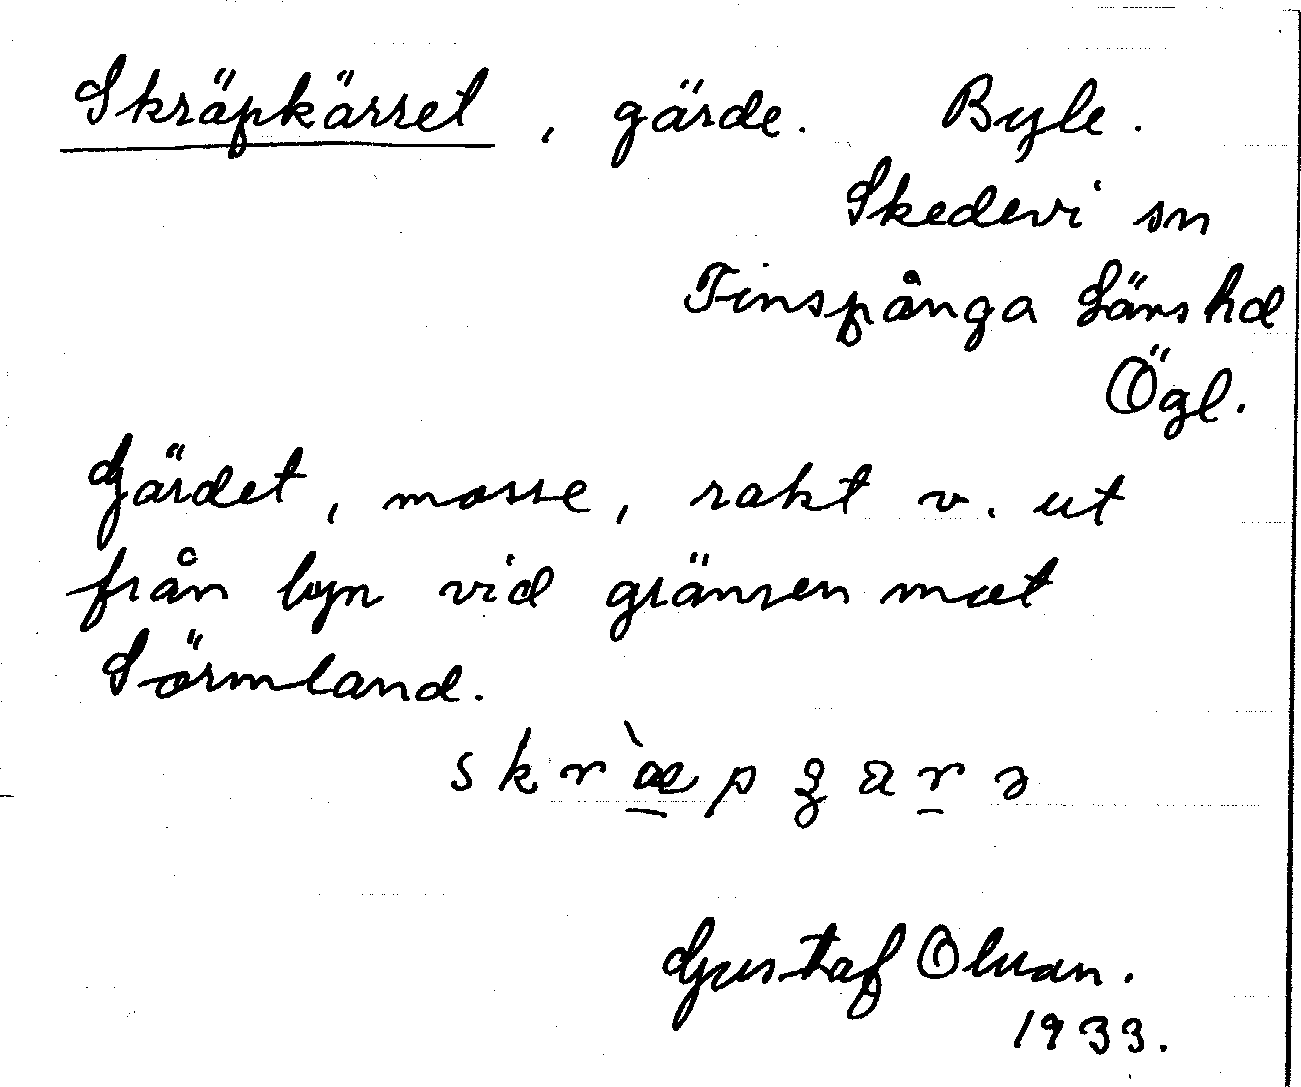 Skräpkärret, gärde. Byle.
Skedevi sn
Finspånga Läns hd
Ögl.
Gärdet, mosse, rakt v. ut
från byn vid gränsen mot
Sörmland.
Gustaf Olson.
1933.